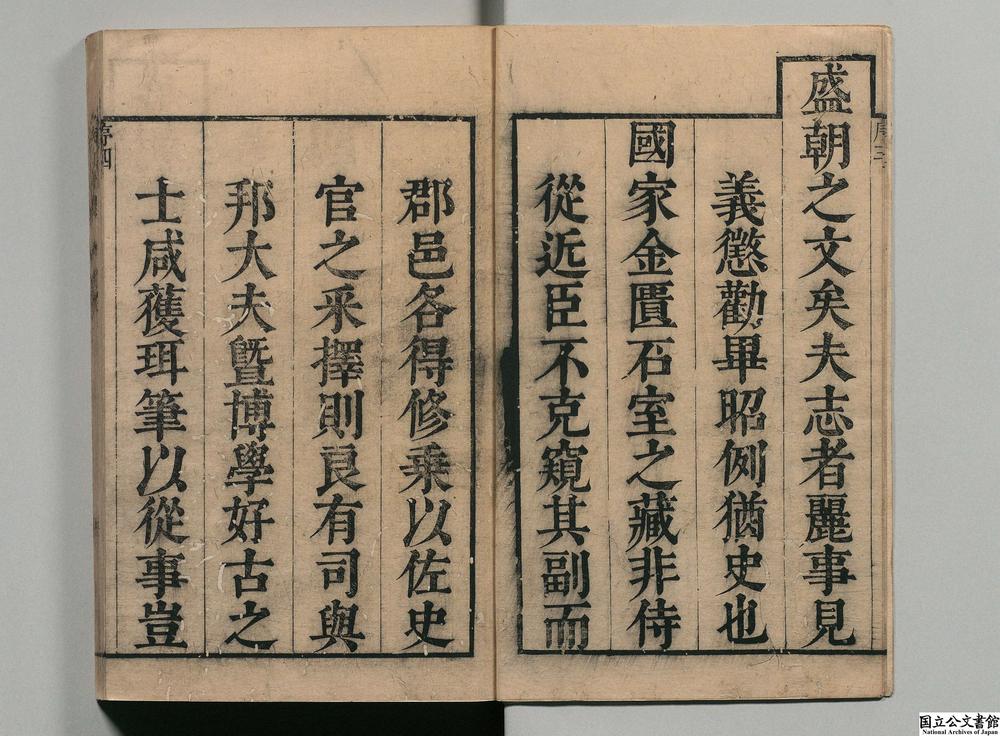 盛朝之文矣夫志者麗事見
義懲勸畢昭例猶史也
國家金匱石室之藏非侍
從近臣不克窺其副而
郡邑各得修乗以佐史
官之采擇則良有司與
邦大夫暨博學好古之
士咸獲珥筆以從事豈
序四
国立公文書館
National Archives of Japan